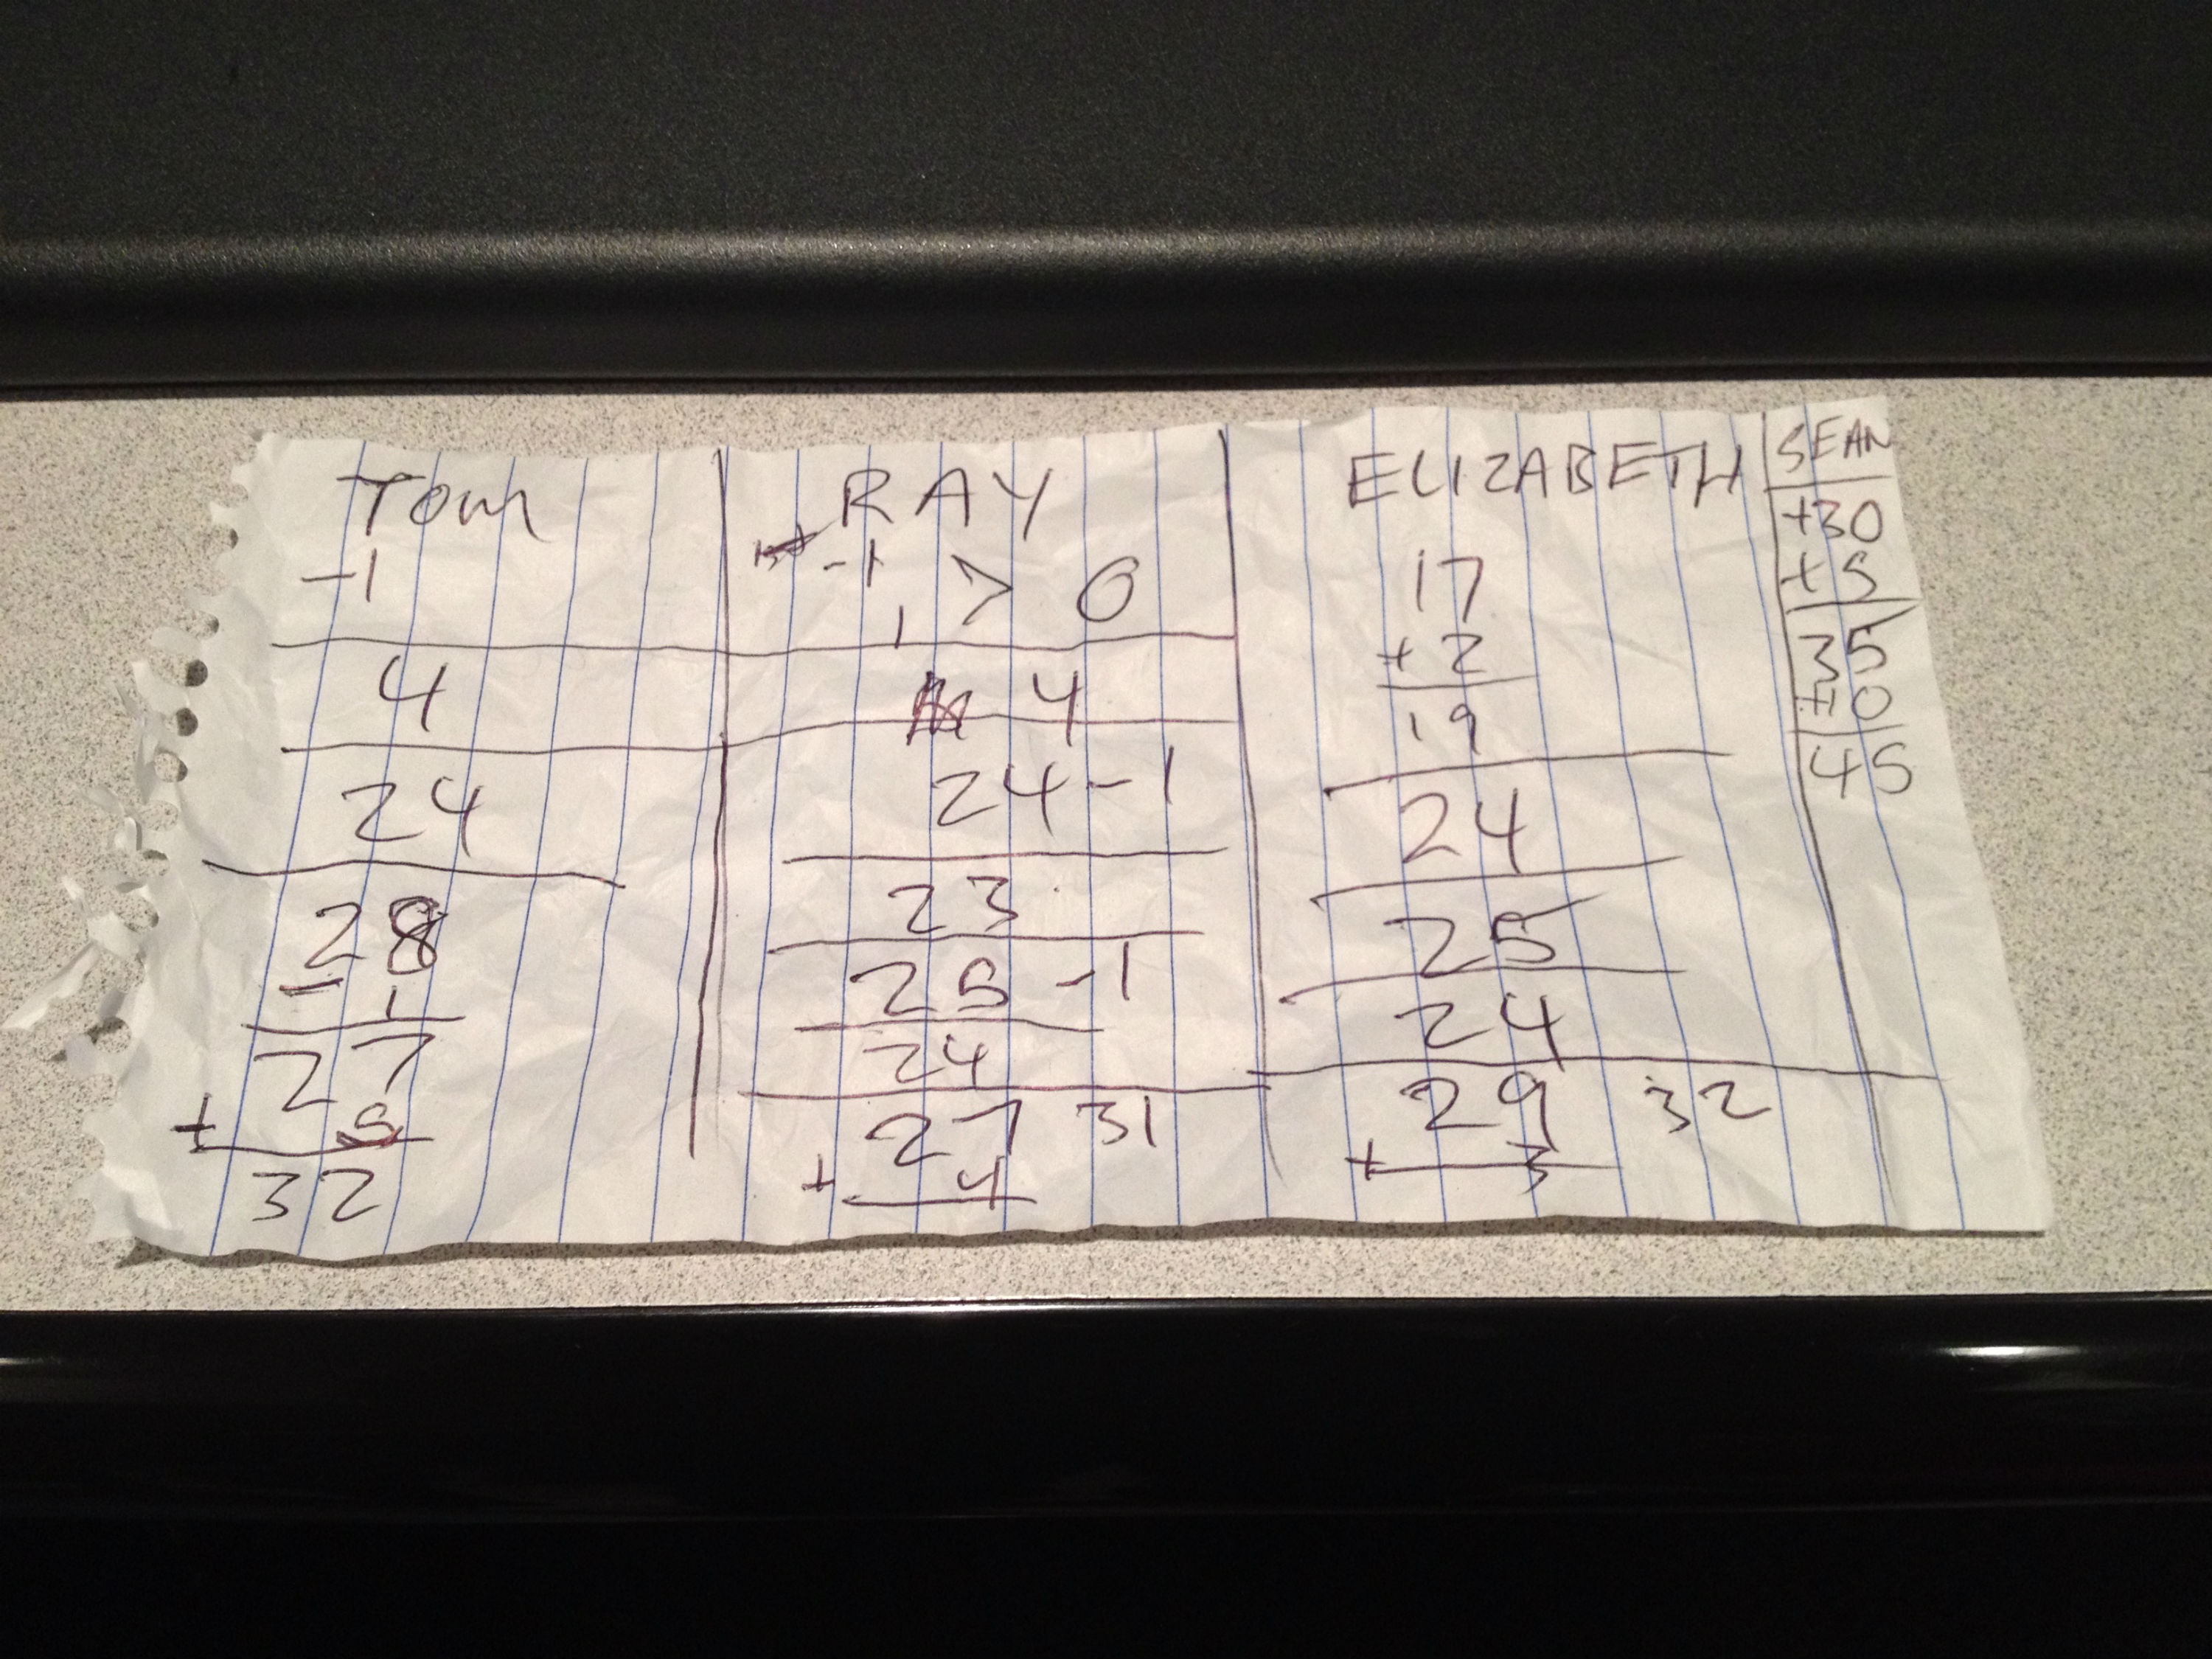 TOM
-1
4
24
28
- 1
27
+ 5
32
RAY
-1
1 > 0
4
24-1
23
25 -1
24
27 31
+ 4
ELIZABETH
17
+ 2
19
24
25
24
29 32
+ 3
SEAN
+30
+5
35
+10
45